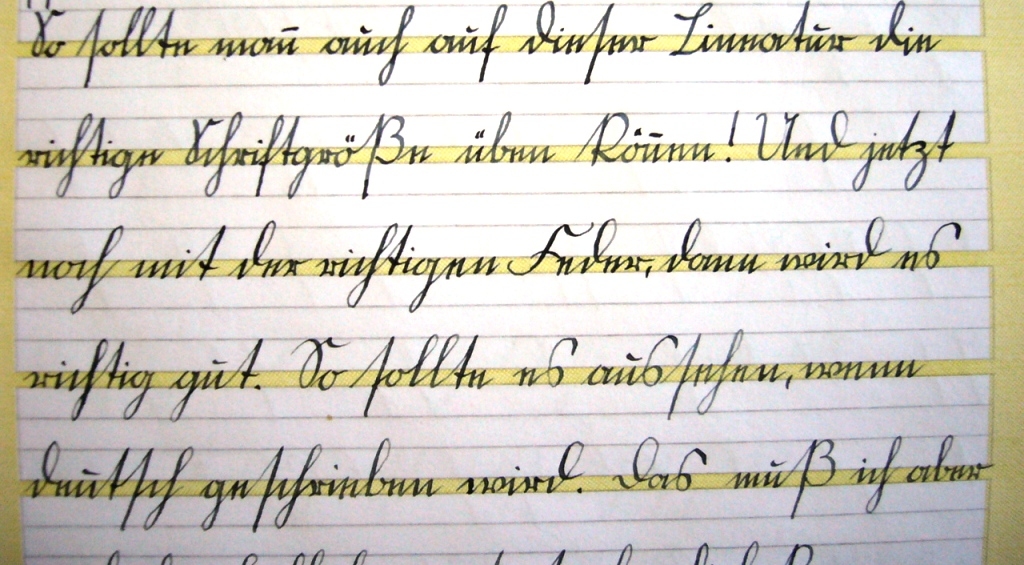 So sollte man̄ auch auf dieser Lineatur die
richtige Schriftgröße üben kön̄en! Und jetzt
noch mit der richtigen Feder, dann wird es
richtig gut. So sollte es aussehen, wenn
deutsch geschrieben wird. Das muß ich aber